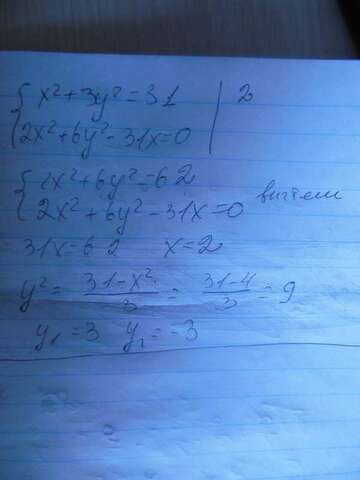 { x² + 3y² = 31 | 2
{ 2x² + 6y² - 31x = 0
{ 2x² + 6y² = 62
{ 2x² + 6y² - 31x = 0 вычтем
31x = 62 x = 2
y² = (31 - x²)/3 = (31 - 4)/3 = 9
y₁ = 3 y₂ = -3